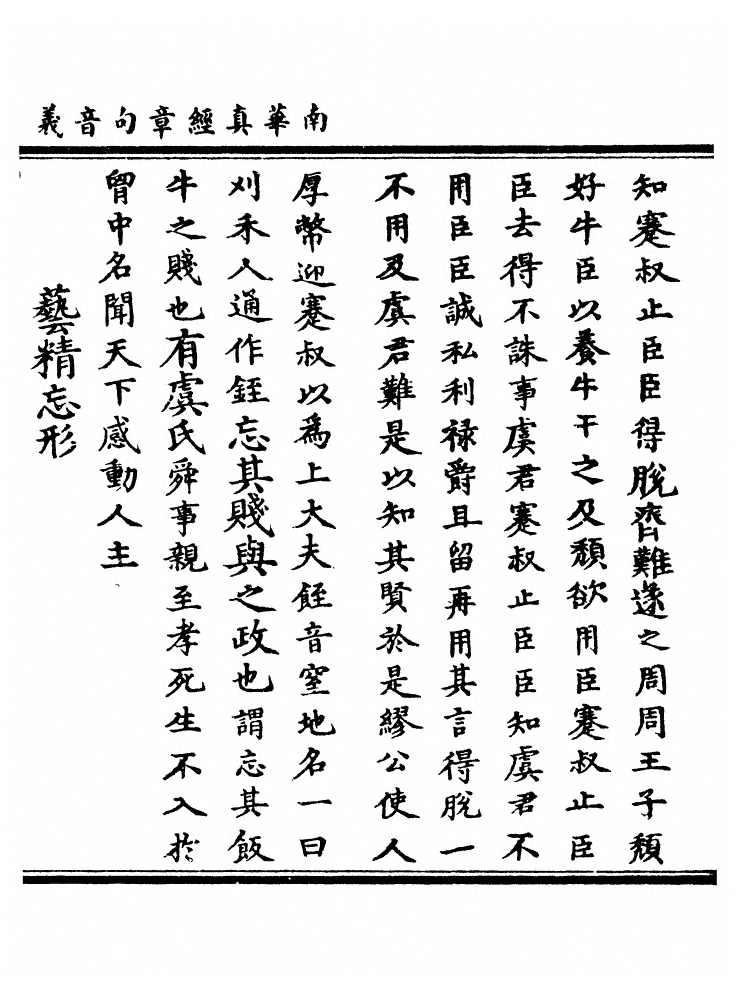 南華真經章句音義
知蹇叔止臣臣得脫齊難遂之周周王子頹
好牛臣以養牛干之及頹欲用臣蹇叔止臣
臣去得不誅事虞君蹇叔止臣臣知虞君不
用臣臣誠私利祿爵且留再用其言得脫一
不用及虞君難是以知其賢於是繆公使人
厚幣迎蹇叔以為上大夫銍音窒地名一曰
刈禾人通作銍忘其賤與之政也謂忘其飯
牛之賤也有虞氏舜事親至孝死生不入於
胷中名聞天下感動人主
藝精忘形